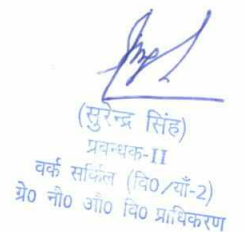 (सुरेन्द्र सिंह)
प्रबन्धक-II
वर्क सर्किल (दि0/याँ-2)
ग्रे0 नौ0 औ0 वि0 प्राधिकरण